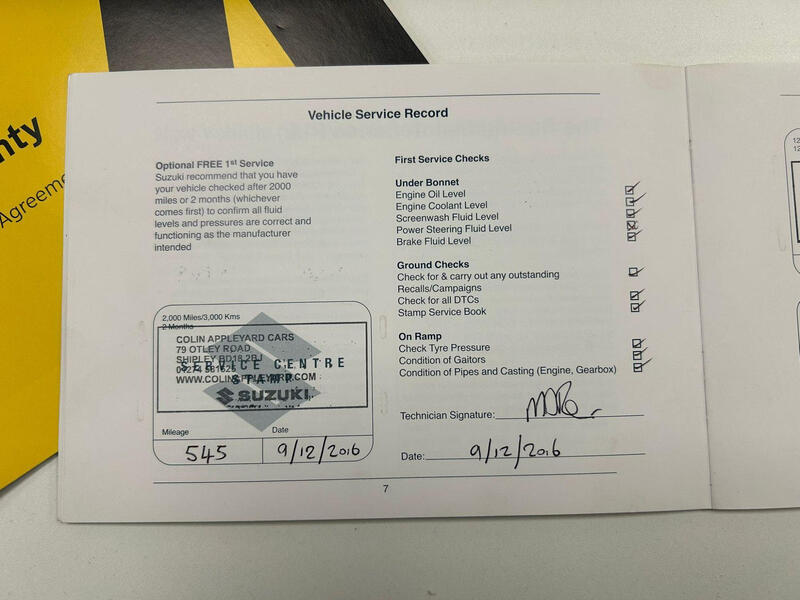 nty
Agreeme
Vehicle Service Record
Optional FREE 1st Service
Suzuki recommend that you have
your vehicle checked after 2000
miles or 2 months (whichever
comes first) to confirm all fluid
levels and pressures are correct and
functioning as the manufacturer
intended
2,000 Miles/3,000 Kms
2 Months
COLIN APPLEYARD CARS
79 OTLEY ROAD
SHIPLEY BD18 2BJ
SERVICE CENTRE
WWW.COLINAPPLEYARD.COM
STAMP
SUZUKI
Mileage
Date
545
9/12/2016
First Service Checks
Under Bonnet
Engine Oil Level
Engine Coolant Level
Screenwash Fluid Level
Power Steering Fluid Level
Brake Fluid Level
Ground Checks
Check for & carry out any outstanding
Recalls/Campaigns
Check for all DTCs
Stamp Service Book
On Ramp
Check Tyre Pressure
Condition of Gaitors
Condition of Pipes and Casting (Engine, Gearbox)
Technician Signature:
Date: 9/12/2016
7